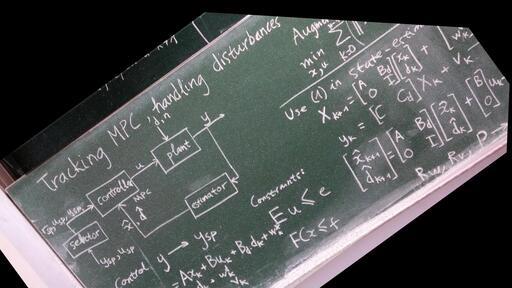 Tracking MPC, handling disturbances
d, n
y
u
plant
controller
MPC
estimator
x̂ d̂
selector
ysp, usp
Control y → ysp
= Axk + Buk + Bd dk + wk
Constraints:
Eu ≤ e
FCx ≤ f
min
x,u
Σ
k=0
Use (1) in state-estim
Xk+1 = [A Bd; 0 I] [xk; dk] +
yk = [C Cd] Xk + vk
[x̂k+1; d̂k+1] = [A Bd; 0 I] [x̂k; d̂k] + [B; 0] u
Rw, Rv, P